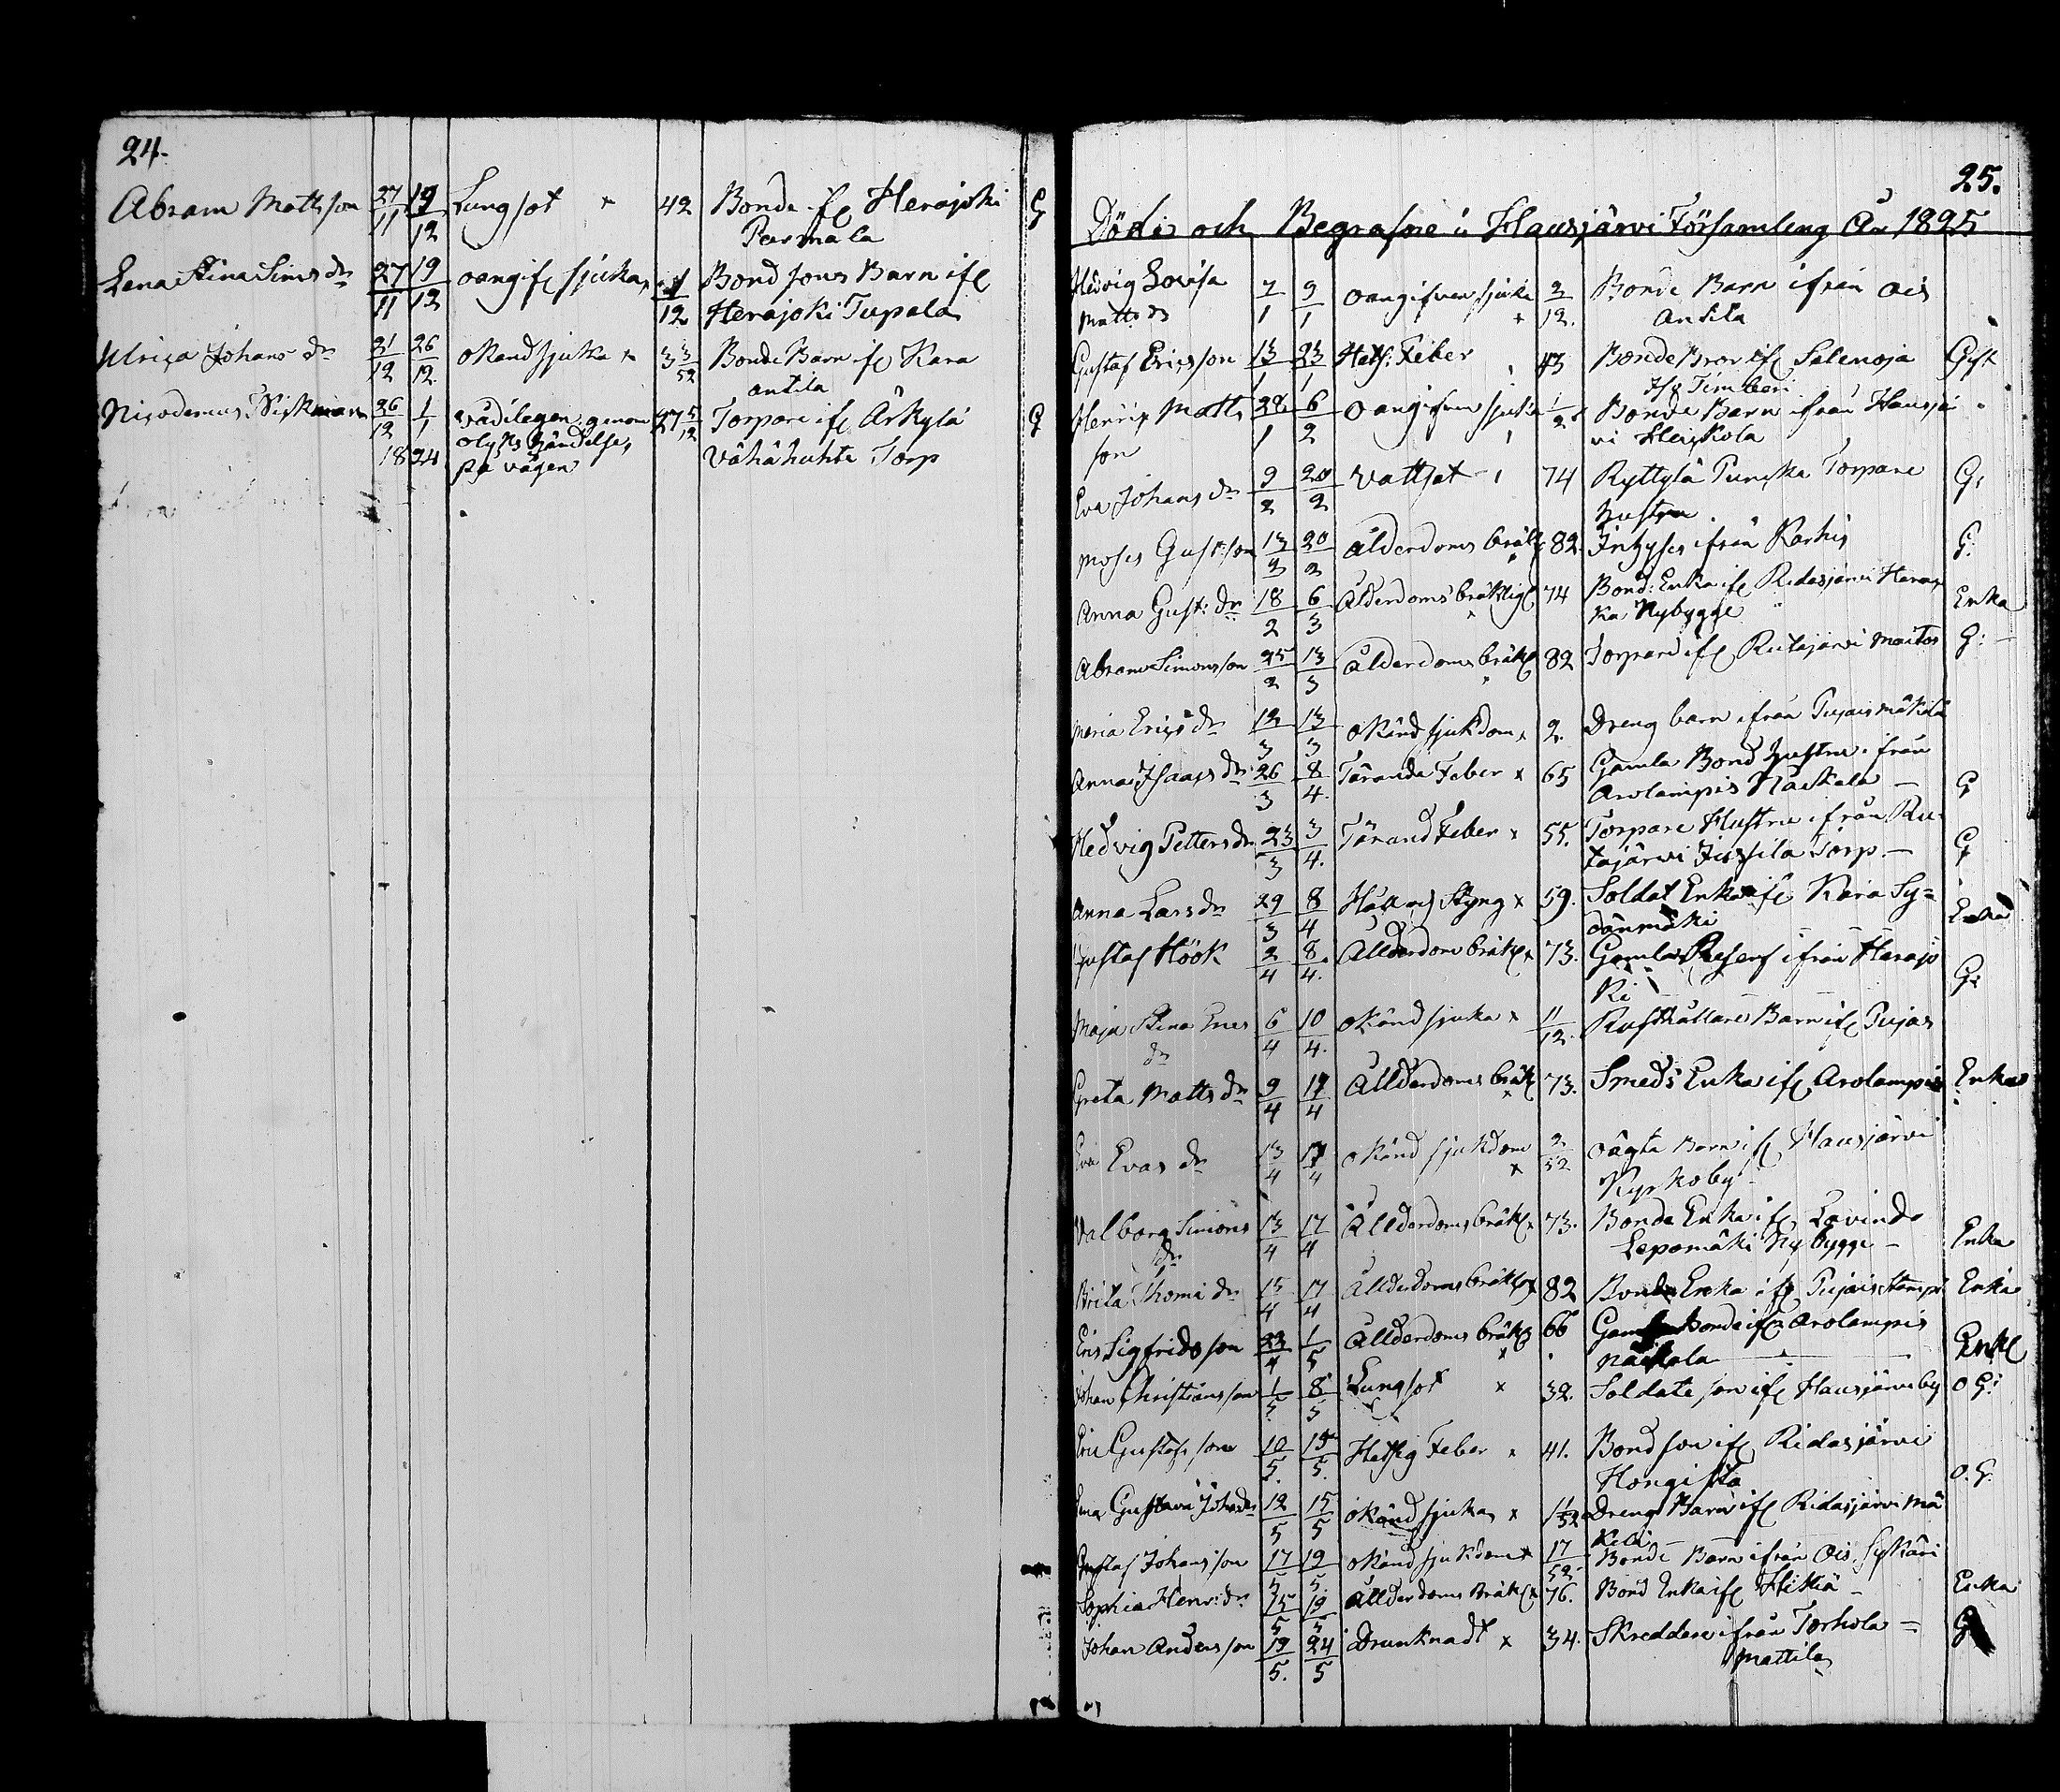 24.
Abram Matts son 27/11 19/12 Lungsot x 42 Bonde ifr Herajoki G
Parmala
Lena Stina Sims dr 27/11 19/12 oangifr sjuka 1/12 Bond sons Barn ifr
Herajoki Tupala
Ulrica Johans dr 21/12 26/12 okänd sjuka x 3 3/52 Bonde Barn ifr Kara
antila
Nicodemus Wikman 26/12 1/1 vådeligen genom 27 5/12 Torpare ifr Ärkylä G
1824 olyks händelse, Vähähuhta Torp
på vägen
25.
Döde och Begrafne i Hausjärvi Församling År 1825
Hedvig Lovisa 7/1 9/1 oangifven sjuka 2/12. Bonde Barn ifrån Ois
Matts dr x Antila
Gustaf Ericsson 13/1 23/1 Hets: Feber 43 Bonde Bror ifr Selenoja Gift
Timberi
Henric Matts 28/1 6/2 oangifven sjuka 1/2 Bonde Barn ifrån Hausjä
son vi Heickola
Eva Johans dr 9/2 20/2 Vattsot 74 Ryttylä Torpare G:
hustru
Moses Gust: son 13/2 20/2 ålderdoms bräkl 82. Inhyses ifrån Karhis G:
Anna Gust: dr 18/2 6/3 Ålderdoms bräklig 74 Bond: Enka ifr Ridasjärvi Enka
ka Nybygge
Abram Simonsson 25/2 13/3 ålderdoms bräkl 82 Torpare ifr Rutajärvi Maitos G:
Maria Erics dr 12/3 13/3 okänd sjukdom x 2. Dreng barn ifrån Pujais mäkilä
Anna Isaacs dr 26/3 8/4. Tärande Feber x 65 Gamla Bond hustru ifrån
Arolampis Nackala — G
Hedvig Petters dr 23/3 3/4. Tärand Feber x 55. Torpare Hustru ifrån Ru-
tajärvi Torp. — G
Anna Lars dr 29/3 8/4 Håll och Styng x 59. Soldat Enka ifr Kara Sy=
dänmäki Enka
Gustaf Höök 2/4 8./4. Ållderdoms bräkl x 73. Gamla Reserf ifrån Herajo
ki G:
Maja Stina Erics 6/4 10/4. okänd sjuka x 11/12. Rusthållare Barn ifr Pujas
dr
Greta Matts dr 9/4 17/4 Ållderdoms bräkl x 73. Smeds Enka ifr Arolampis Enka
Eva Evas dr 13/4 17/4 okänd sjukdom x 2/52 oägta Barn ifr Hausjärvi
Kyrkoby
Valborg Simons 13/4 17/4 Ållderdoms bräkl x 73. Bonde Enka ifr Lavinde
dr Lepomäki Nybygge — Enka
Brita Thomæ dr 15/4 17/4 Ållderdoms bräkl x 82 Bonde Enka ifr Pujais Enka
Eric Sigfridsson 23/4 1/5 Ållderdoms bräkl x 66 Gamla Bonde ifr Arolampis
Nackala Enkl
Johan Christiansson 1/5 8/5 Lungsot x 32. Soldate son ifr Hausjärvi by O G:
Eric Gustafs son 10/5. 15/5. Hetsig Feber x 41. Bond son ifr Ridasjärvi
Hongisto O. G.
Gustava Johans dr 12/5 15/5 okänd sjuka x 1 1/52 Dreng Barn ifr Ridasjärvi Mä
kelä
Gustaf Johansson 17/5 19/5 okänd sjukdom x 17/52 Bonde Barn ifrån Ois Sykäri
Sophia Henr: dr 15/5 19/5 Ållderdoms Bräkl x 76. Bond Enka ifr Hikiä Enka
Johan Andersson 19/5. 24/5 Drunknadt x 34. Skreddare ifrån Torhola = G
Mattila